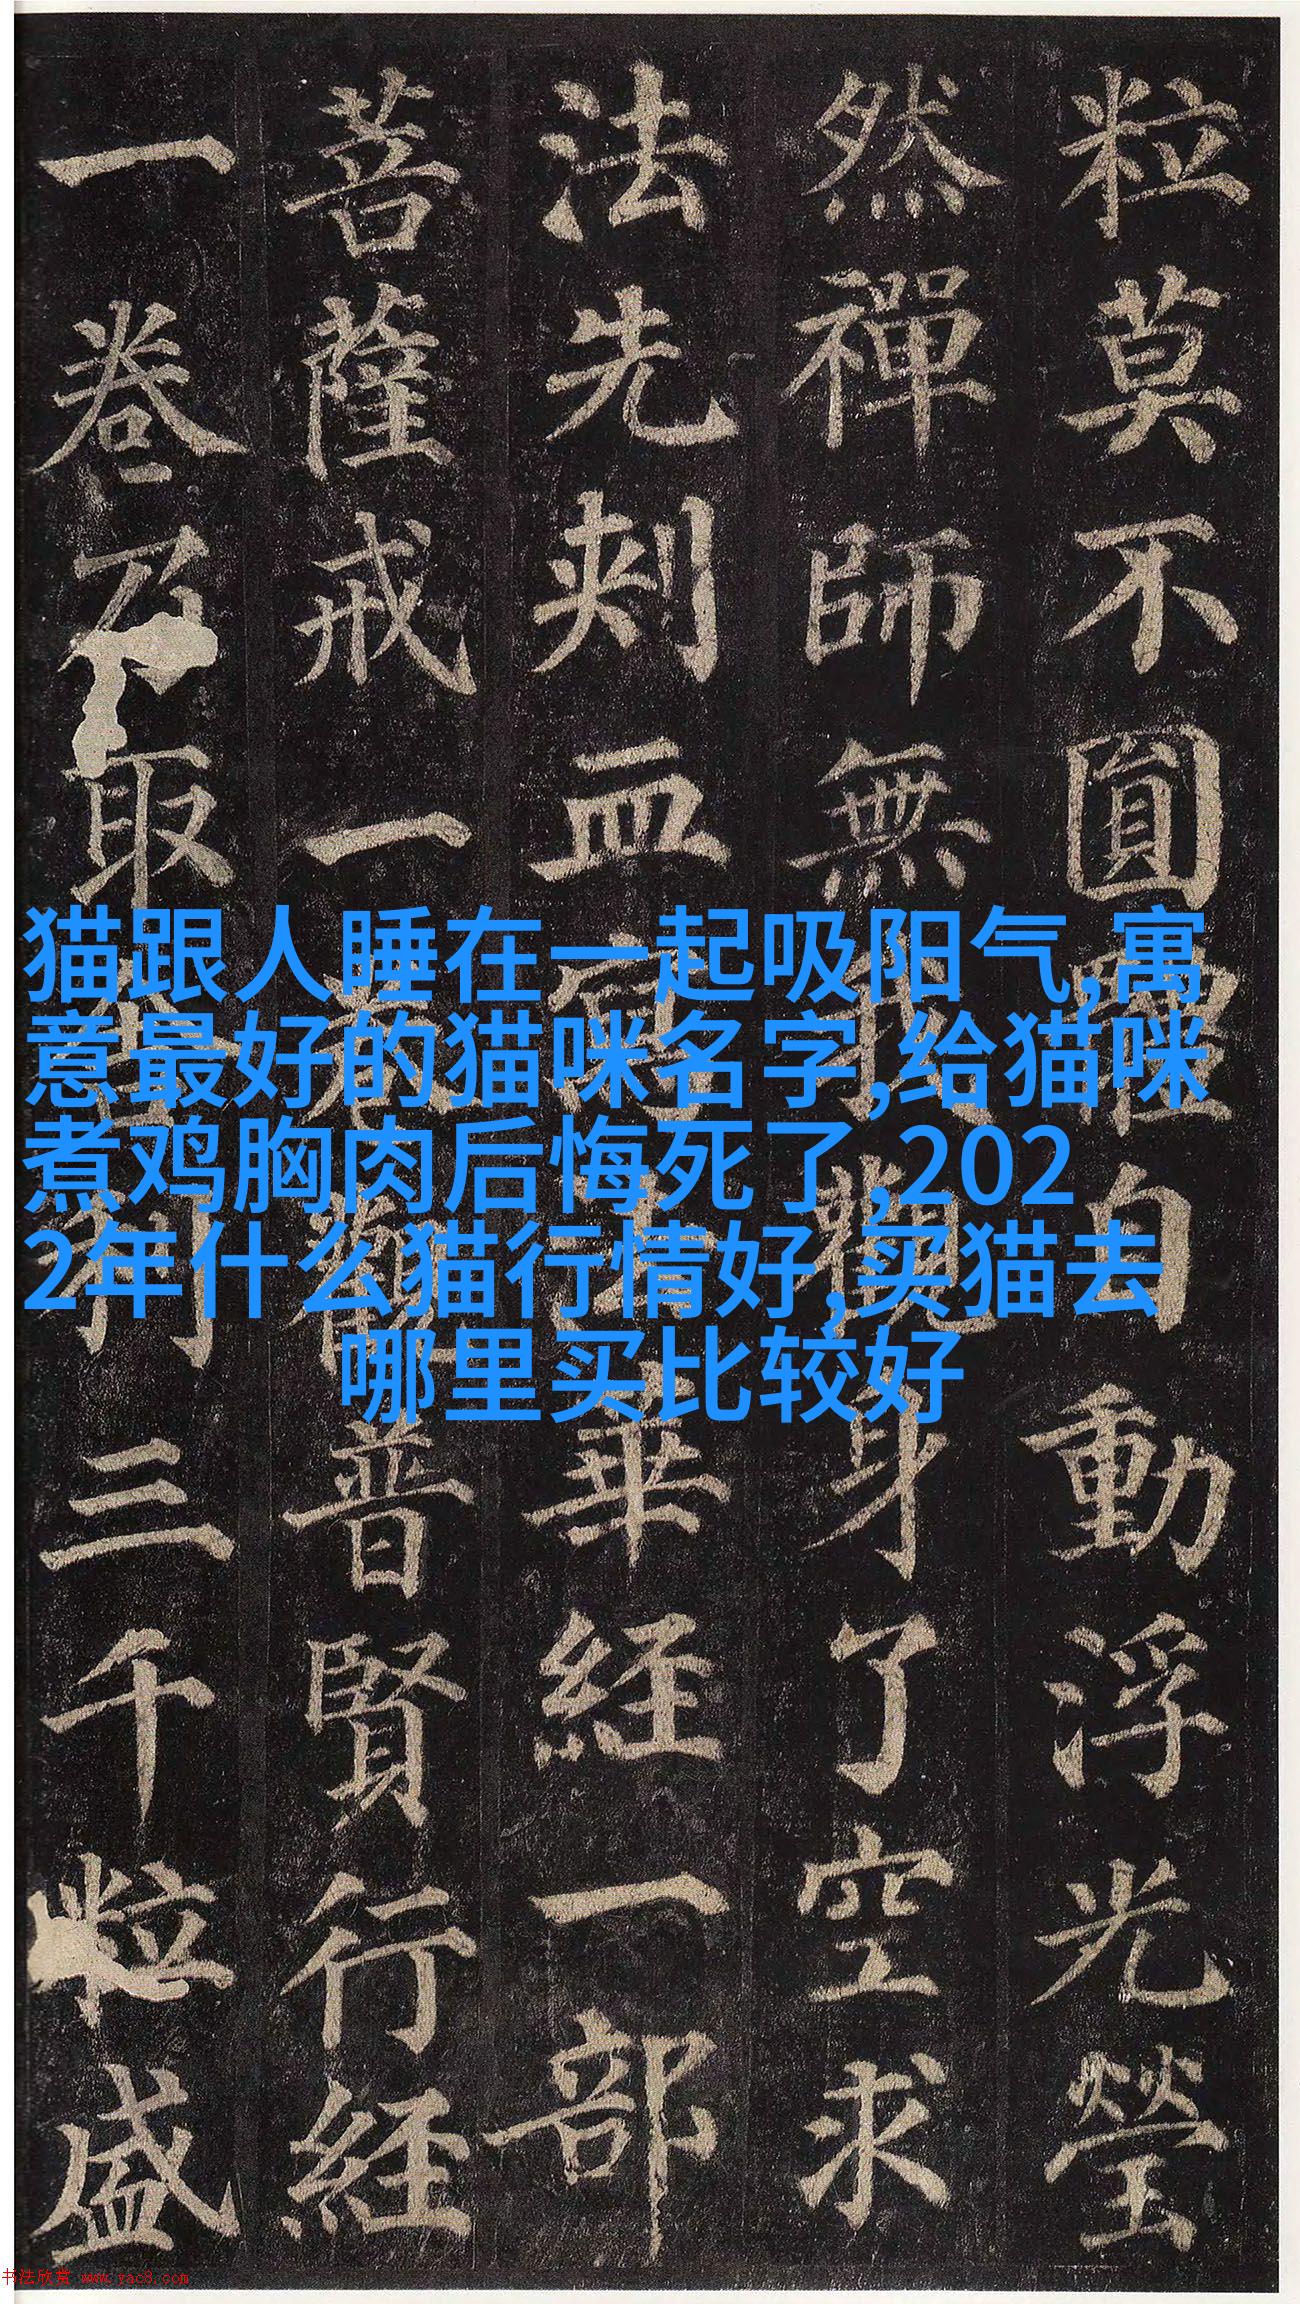 粒莫不圓體自動浮光瑩
然禪師無我觀身了空求
法先刺血寫法華経一部
菩薩戒一卷觀普賢行経
一卷乃取舍利三千粒盛
猫跟人睡在一起吸阳气,寓
意最好的猫咪名字,给猫咪
煮鸡胸肉后悔死了,202
2年什么猫行情好,买猫去
哪里买比较好
书法欣赏 www.yac8.com